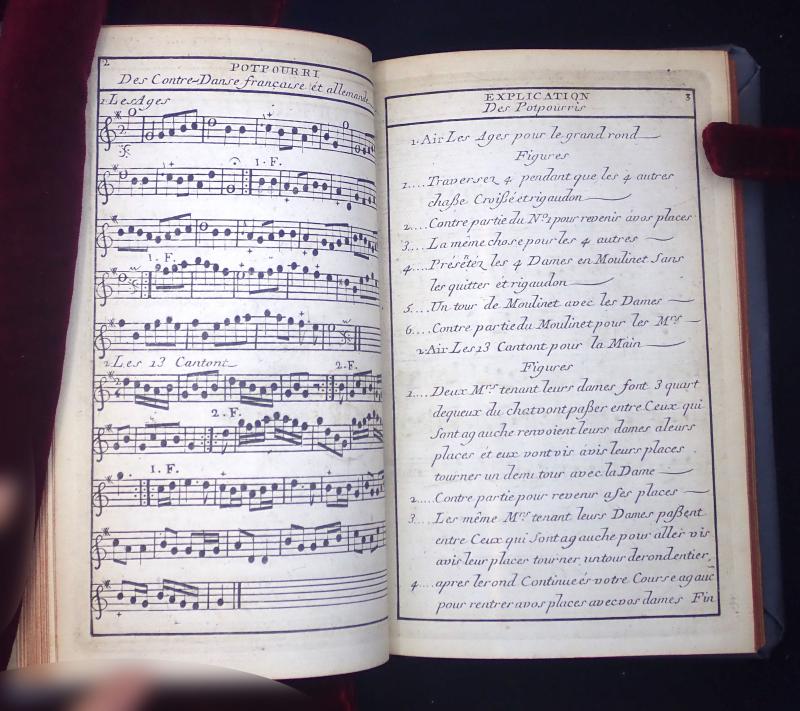 2
POTPOURRI
Des Contre-Danse française et allemande
1. Les Ages
1. F.
1. F.
2. Les 13 Cantont
2. F.
2. F.
1. F.
EXPLICATION 3
Des Potpourris
1. Air Les Ages pour le grand rond
Figures
1.... Traversez 4 pendant que les 4 autres
chaße Croißé et rigaudon
2.... Contre partie du Nº1 pour revenir avos places
3.... La même chose pour les 4 autres
4.... Présétez les 4 Dames en Moulinet Sans
les quitter et rigaudon
5.... Un tour de Moulinet avec les Dames
6.... Contre partie du Moulinet pour les Mrs
2. Air Les 13 Cantont pour la Main
Figures
1.... Deux Mrs tenant leurs dames font 3 quart
dequeux du chat vont paßer entre Ceux qui
Sont ag auche renvoient leurs dames aleurs
places et eux vont vis avis leurs places
tourner un demi tour avec la Dame
2.... Contre partie pour revenir ases places
3.... Les même Mrs tenant leurs Dames paßent
entre Ceux qui Sont ag auche pour aller vis
avis leur places tourner un tour derond entier,
4.... apres lerond Continueés votre Course ag auc
pour rentrer avos places avec vos dames Fin